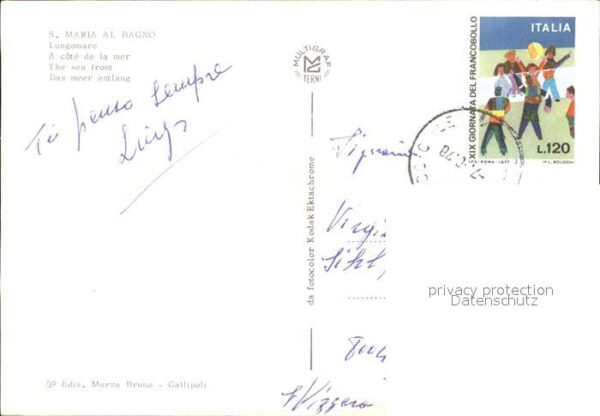 S. MARIA AL BAGNO
Lungomare
A côté de la mer
The sea front
Das meer entlang
Ti penso sempre
Luigi
59 Ediz. Murra Bruno - Gallipoli
MULTIGRAF
TERNI
da fotocolor Kodak Ektachrome
ITALIA
XIX GIORNATA DEL FRANCOBOLLO
L.120
I.P.Z.S.-ROMA-1977
M.L. BOLOGNI
Signorina
Sihl
Svizzera
privacy protection
Datenschutz